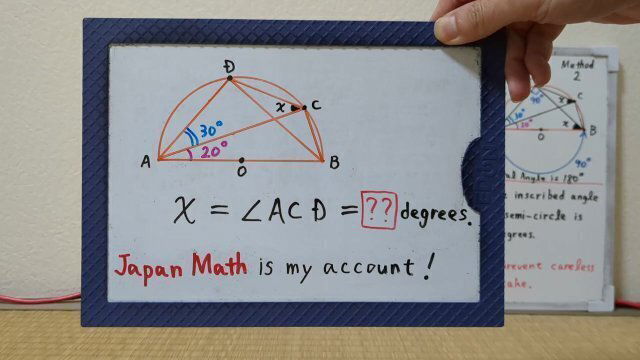 D
x C
30°
20°
A O B
x = ∠ACD = ?? degrees.
Japan Math is my account!
Method
2
90°
x C
30°
20°
x B
O
90°
al Angle is 180°
inscribed angle
semi-circle is
grees.
revent careless
ake.